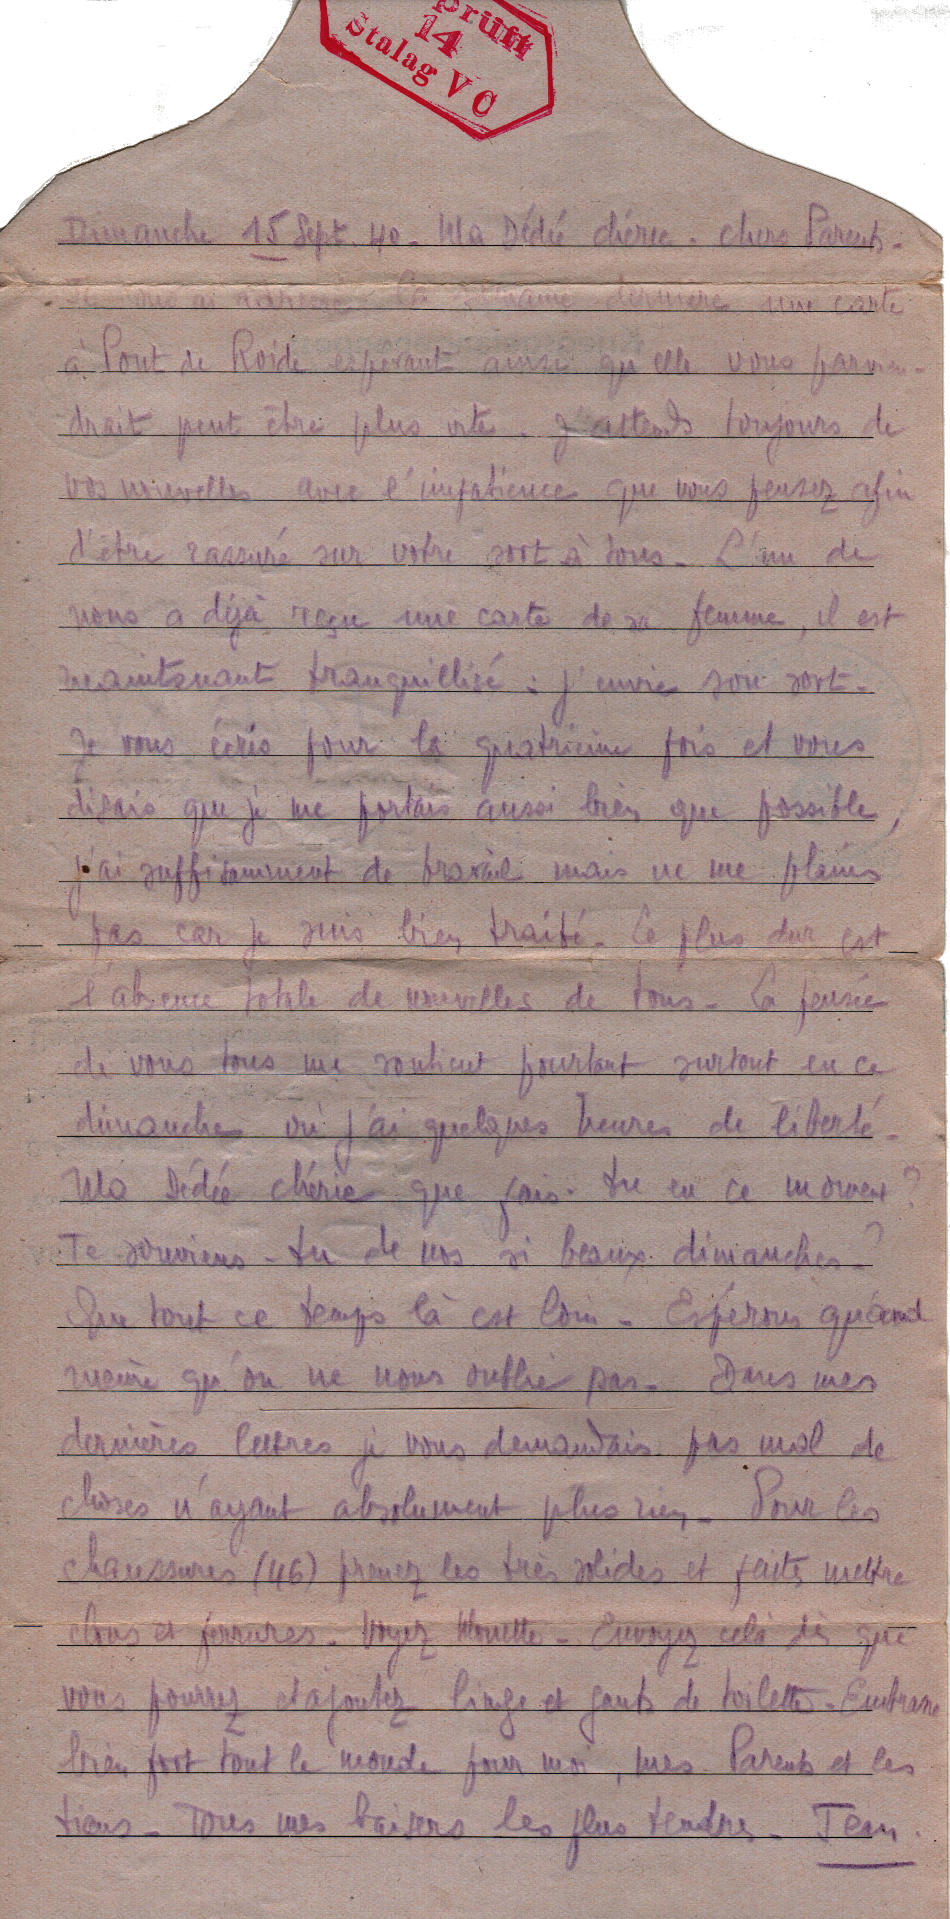 prüft
14
Stalag V C
Dimanche 15 Sept. 40. Ma Dédée chérie. chers Parents.
Je vous ai adressé la semaine dernière une carte
à Pont de Roide esperant ainsi qu'elle vous parvien-
drait peut être plus vite. J'attends toujours de
vos nouvelles avec l'impatience que vous pensez afin
d'être rassuré sur votre sort à tous. L'un de
nous a déjà reçu une carte de sa femme, il est
maintenant tranquillisé : j'envie son sort.
Je vous écris pour la quatrième fois et vous
disais que je me portais aussi bien que possible,
j'ai suffisamment de travail mais ne me plains
pas car je suis bien traité. Le plus dur est
l'absence totale de nouvelles de tous. La pensée
de vous tous me soutient pourtant surtout en ce
dimanche où j'ai quelques heures de liberté.
Ma Dédée chérie que fais-tu en ce moment ?
Te souviens-tu de nos si beaux dimanches ?
Que tout ce temps là est loin. Espérons quand
même qu'on ne nous oublie pas. Dans mes
dernières lettres je vous demandais pas mal de
choses n'ayant absolument plus rien. Pour les
chaussures (46) prenez les très solides et faites mettre
clous et ferrures. Voyez Mouette. Envoyez celà dès que
vous pourrez et ajoutez linge et gants de toilette. Embrasse
bien fort tout le monde pour moi, mes Parents et les
tiens. Tous mes baisers les plus tendres. Jean.